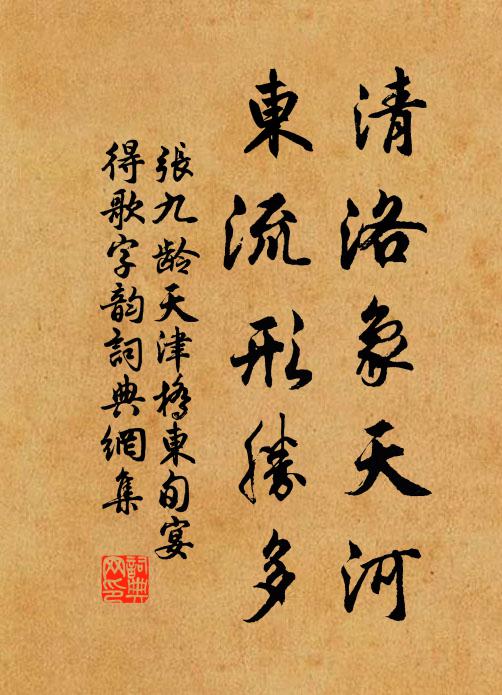 清洛象天河
東流形勝多
張九龄天津橋東旬宴
得歌字韵詞典網集
詞典
网印